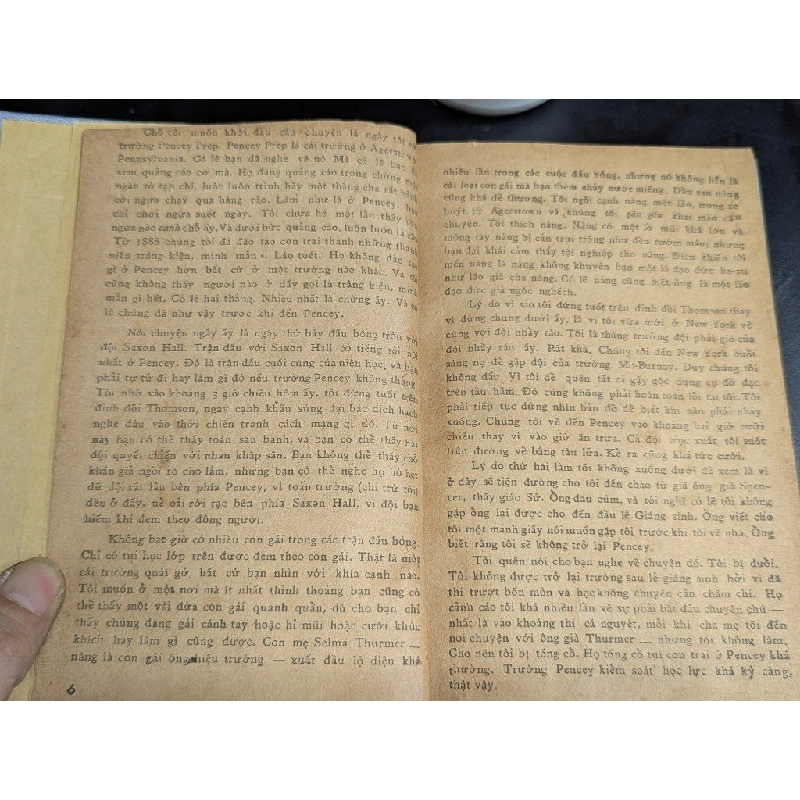 Chỗ tôi muốn khởi đầu câu chuyện là ngày tôi
trường Pencey Prep. Pencey Prep là cái trường ở Agerstown
Pennsylvania. Có lẽ bạn đã nghe về nó Mà có lẽ bạn
xem quảng cáo cơ mà. Họ đăng quảng cáo trong chừng một
ngàn tờ tạp chí, luôn luôn trình bầy một thằng cha rất bảnh
cỡi ngựa chạy qua hàng rào. Làm như là ở Pencey bạn
chỉ chơi ngựa suốt ngày. Tôi chưa hề một lần thấy con
ngựa nào cả ở chỗ ấy. Và dưới bức quảng cáo, luôn luôn là câu
Từ 1888 chúng tôi đã đào tạo con trai thành những thanh
niên tráng kiện, minh mẫn ». Láo toét. Họ không đào tạo
gì ở Pencey hơn bất cứ ở một trường nào khác. Và tôi
cũng không thấy người nào ở đấy gọi là tráng kiện, minh
mẫn gì hết. Có lẽ hai thằng. Nhiều nhất là chừng ấy. Và có
lẽ chúng đã như vậy trước khi đến Pencey.
Nói chuyện ngày ấy là ngày thứ bảy đấu bóng tròn với
đội Saxon Hall. Trận đấu với Saxon Hall có tiếng
nhất ở Pencey. Đó là trận đấu cuối cùng của niên học, và bạn
phải tự tử đi hay làm gì đó nếu trường Pencey không thắng.
Tôi nhớ vào khoảng 3 giờ chiều hôm ấy, tôi đứng tuốt trên
đỉnh đồi Thomson, ngay cạnh khẩu súng đại bác đích
nghe đâu vào thời chiến tranh cách mạng gì đó. Từ nơi
này bạn có thể thấy toàn sân banh, và bạn có thể thấy hai
đội quyết chiến với nhau khắp sân. Bạn không thể thấy
khán giả ngồi rõ cho lắm, nhưng bạn có thể nghe họ hò hét
dữ dội rất lâu bên phía Pencey, vì toàn trường (chỉ trừ tôi)
đều ở đấy, uể oải rời rạc bên phía Saxon Hall, vì đội bạn
hiếm khi đem theo đông người.
Không bao giờ có nhiều con gái trong các trận đấu bóng.
Chỉ có tụi học lớp trên được đem theo con gái. Thật là một
cái trường quái gở, bất cứ bạn nhìn với khía cạnh nào.
Tôi muốn ở một nơi mà ít nhất thỉnh thoảng bạn cũng có
thể thấy một vài đứa con gái quanh quẩn, dù cho bạn chỉ
thấy chúng đang gãi cánh tay hoặc hỉ mũi hoặc cười khúc
khích hay làm gì cũng được. Con mẹ Selma Thurmer —
nàng là con gái ông hiệu trưởng — xuất đầu lộ diện khá
6
nhiều lần trong các cuộc đấu bóng, nhưng nó không hẳn là
cái loại con gái mà bạn thèm chảy nước miếng. Dầu sao nàng
cũng khá dễ thương. Tôi ngồi cạnh nàng một lần, trong xe
buýt từ Agerstown và chúng tôi gần gũi khai mào câu
chuyện. Tôi thích nàng. Nàng có một lỗ mũi khá lớn và
móng tay nàng bị cắn trụi trông như đều tươm máu; nhưng
bạn đại khái cảm thấy tội nghiệp cho nàng. Điều khiến tôi
mến nàng là nàng không khuyên bạn một lô đạo đức
như lão già của nàng. Có lẽ nàng cũng biết ông là một lão
đạo đức giả ngốc nghếch.
Lý do vì sao tôi đứng tuốt trên đỉnh đồi Thomson thay
vì đứng chung dưới ấy, là vì tôi vừa mới ở New York về
cùng với đội nhảy rào. Tôi là thằng trưởng đội phát gió của
đội nhảy rào ấy. Rất khá. Chúng tôi đến New York buổi
sáng nọ để gặp đội của trường Mc-Burney. Duy chúng tôi
không đấu. Vì tôi để quên tất cả gậy gộc dụng cụ đồ đạc
trên tàu hầm. Đó cũng không phải hoàn toàn lỗi tại tôi. Tôi
phải tiếp tục đứng nhìn bản đồ để biết khi nào phải nhảy
xuống. Chúng tôi về đến Pencey vào khoảng hai giờ rưỡi
chiều thay vì vào giờ ăn trưa. Cả đội trục xuất tôi suốt
trên đường về bằng tàu lửa. Kể ra cũng khá tức cười.
Lý do thứ hai làm tôi không xuống dưới để xem là vì
ở đây sẽ tiện đường cho tôi đến chào từ giã ông già Spen-
cer, thầy giáo Sử. Ông đau cúm, và tôi nghĩ có lẽ tôi không
gặp ông lại được cho đến đầu lễ Giáng sinh. Ông viết cho
tôi một mảnh giấy nói muốn gặp tôi trước khi tôi về nhà. Ông
biết rằng tôi sẽ không trở lại Pencey.
Tôi quên nói cho bạn nghe về chuyện đó. Tôi bị đuổi.
Tôi không được trở lại trường sau lễ giáng sinh bởi vì đã
thi trượt bốn môn và học không chuyên cần chăm chỉ. Họ
cảnh cáo tôi khá nhiều lần về sự phải bắt đầu chuyên chú —
nhất là vào khoảng thi cá nguyệt, mỗi khi cha mẹ tôi đến
nói chuyện với ông già Thurmer — nhưng tôi không làm.
Cho nên tôi bị tống cổ. Họ tống cổ tụi con trai ở Pencey khá
thường. Trường Pencey kiểm soát học lực khá kỹ càng,
thật vậy.